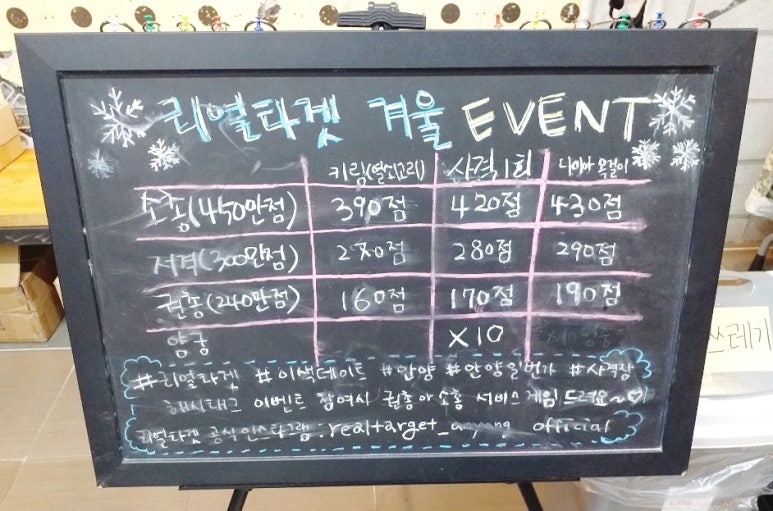 리얼타겟 겨울 EVENT
키링(열쇠고리) 사격1회
소총(450만점) 390점 420점 430점
저격(300만점) 270점 280점 290점
권총(240만점) 160점 170점 190점
양궁 X10
#리얼타겟 #이색데이트 #안양 #안양일번가 #사격장
해시태그 이벤트 참여시 권총 or 소총 서비스게임 드려요~♡
리얼타겟 공식인스타그램 : realtarget_anyang official
쓰레기